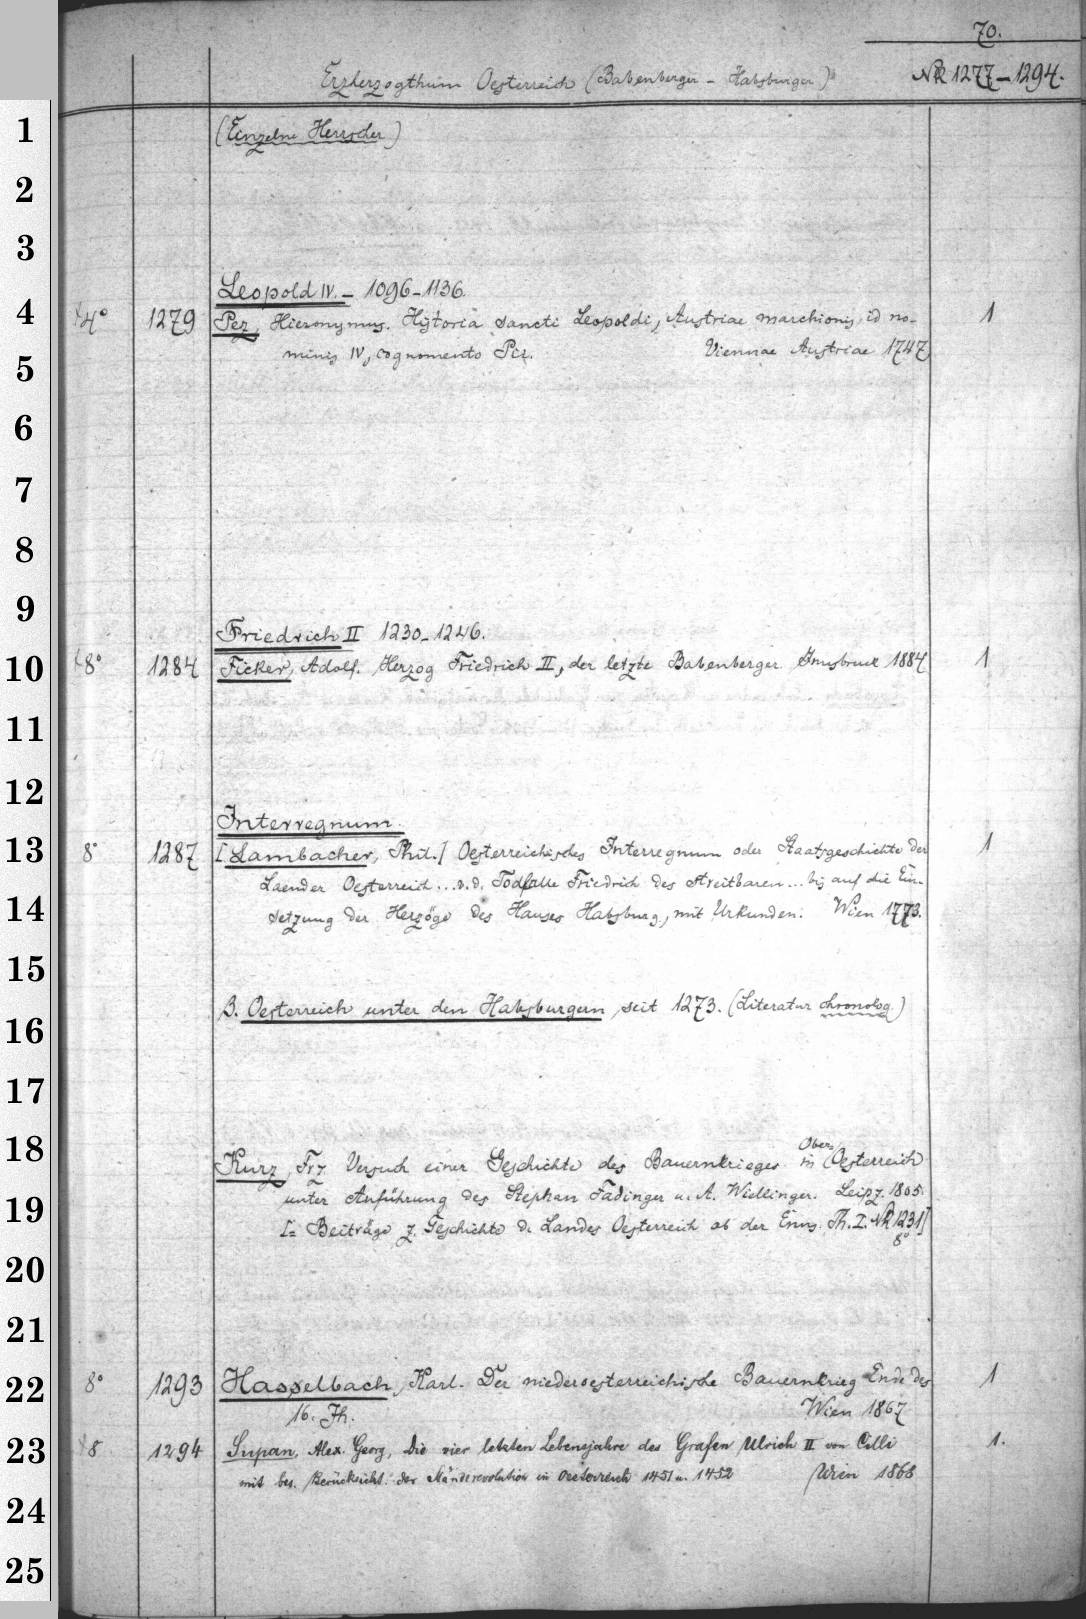 70.
Erzherzogthum Oesterreich (Babenberger - Habsburger) NR 1277-1294.
1 (Einzelne Herrscher)
2
3
Leopold IV. - 1096-1136.
4 4° 1279 Pez, Hieronymus. Hystoria sancti Leopoldi, Austriae marchionis, id no- 1
minis IV, cognomento Pii. Viennae Austriae 1747
5
6
7
8
9
Friedrich II 1230-1246.
10 8° 1284 Ficker, Adolf. Herzog Friedrich II, der letzte Babenberger. Innsbruck 1884 1
11
12
Interregnum.
13 8° 1287 [Lambacher, Phil.] Oesterreichisches Interregnum oder Staatsgeschichte der 1
Laender Oesterreich... s.d. Todfalle Friedrich des Streitbaren... bis auf die Ein-
14 setzung der Herzöge des Hauses Habsburg, mit Urkunden. Wien 1773.
15
B. Oesterreich unter den Habsburgern, seit 1273. (Literatur chronolog.)
16
17
Ober
18 Kurz, Frz. Versuch einer Geschichte des Bauernkrieges in Oesterreich
unter Anführung des Stephan Fadinger u. A. Wiellinger. Leipz. 1805.
19 [= Beiträge z. Geschichte d. Landes Oesterreich ob der Enns. Th. I. NR 1231]
8°
20
21
22 8° 1293 Hasselbach, Karl. Der niederoesterreichische Bauernkrieg Ende des 1
16. Jh. Wien 1867
23 8 1294 Supan, Alex. Georg, Die vier letzten Lebensjahre des Grafen Ulrich II von Cilli 1.
mit bes. Berücksicht. der Ständerevolution in Oesterreich 1451 u. 1452 Wien 1868
24
25